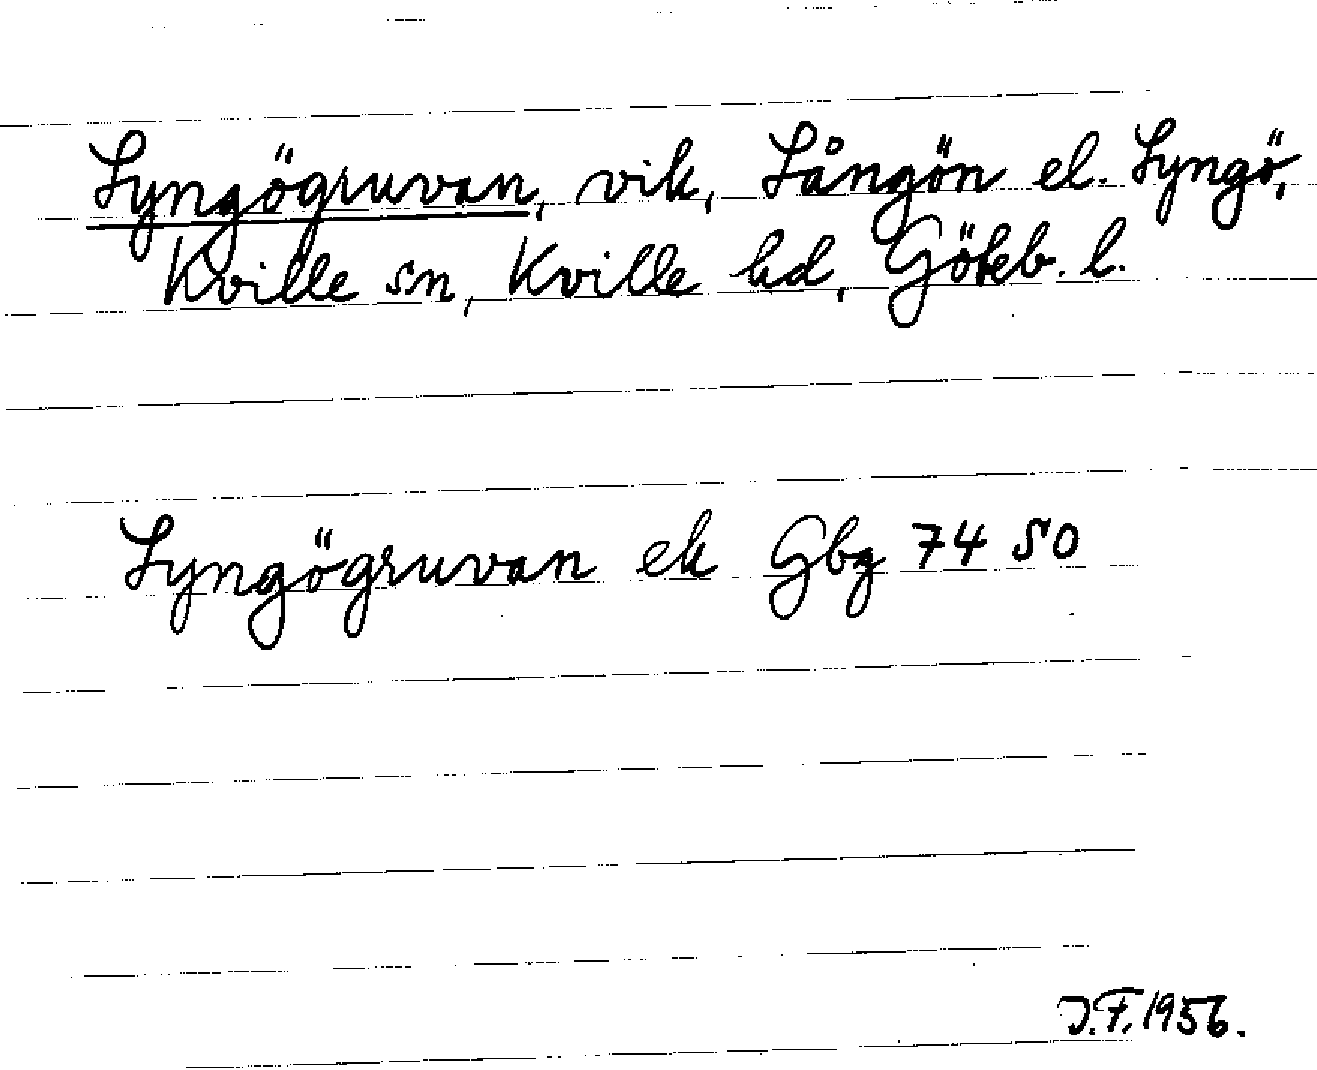 Lyngögruvan, vik, Långön el. Lyngö,
Kville sn, Kville hd, Göteb. l.
Lyngögruvan ek Gbg 74 SO
J.F. 1956.